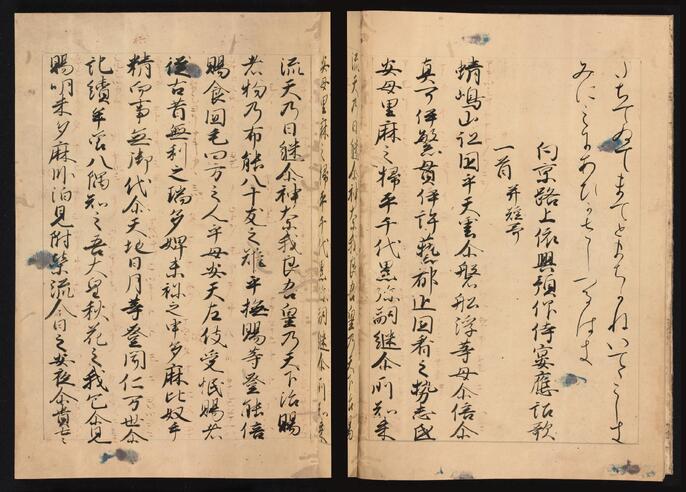 たちてゐてまてとまちかねいてゝこしき
みにこゝにあひかさしつるはき
向京路上依興預作侍宴應詔歌
一首 并短哥
蜻嶋山跡國乎天雲尓磐舩浮等母尓倍尓
真可伊繁貫伊許藝都追國看之勢志氐
安母里麻之掃平千代累弥嗣継尓所知来
流天乃日継尓神奈我良吾皇乃天下治賜
者物乃布能八十友之雄乎撫賜等登能倍
賜食國毛四方之人乎母安天左伎受怋賜者
従古昔無利之瑞多婢未祢之申多麻比奴手
精而事無御代尓天地日月等登聞仁万世尓
記續牟曽八隅知之吾大皇秋花之我色尓見
賜明来多麻比泊見附榮流今日之安夜尓貴左